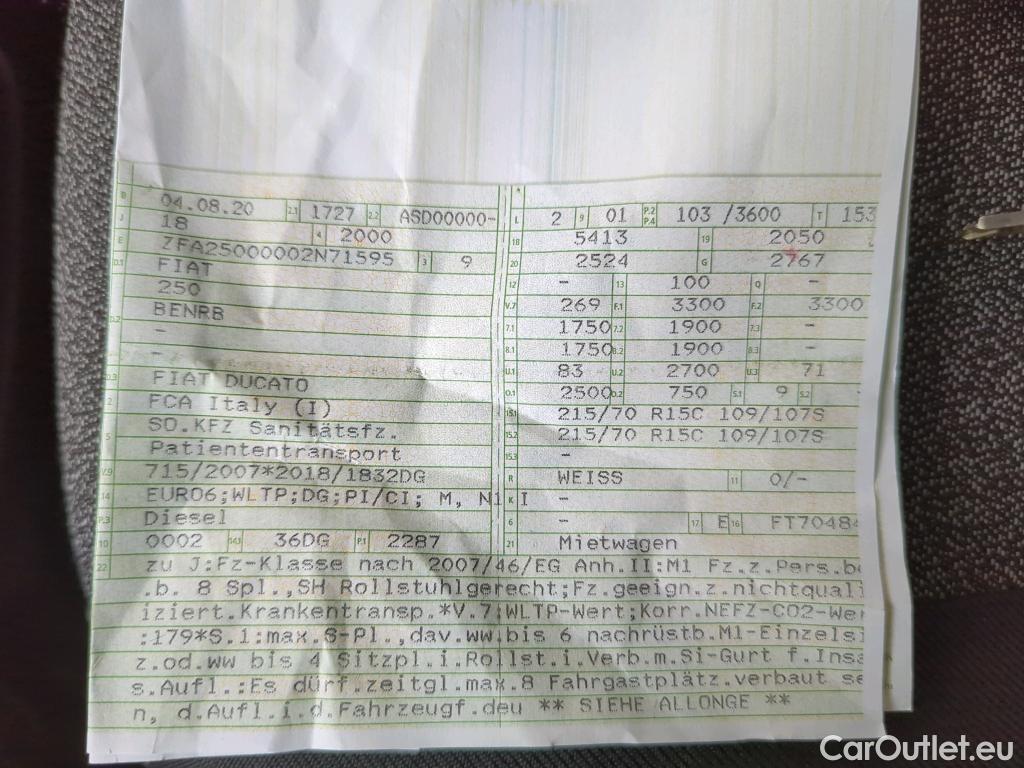 B 04.08.20 2.1 1727 2.2 ASD00000-
J 18 4 2000
E ZFA25000002N71595 3 9
D.1 FIAT
250
D.2 BENRB
-
-
D.3 FIAT DUCATO
FCA Italy (I)
5 SO.KFZ Sanitätsfz.
Patiententransport
V.9 715/2007*2018/1832DG
14 EURO6;WLTP;DG;PI/CI; M, N1 I
P.3 Diesel
10 0002 14.1 36DG P.1 2287
L 2 9 01 P.2 P.4 103 /3600 T 153
18 5413 19 2050
20 2524 G 2767
12 - 13 100 Q -
V.7 269 F.1 3300 F.2 3300
7.1 1750 7.2 1900 7.3 -
8.1 1750 8.2 1900 8.3 -
U.1 83 U.2 2700 U.3 71
O.1 2500 O.2 750 S.1 9 S.2
15.1 215/70 R15C 109/107S
15.2 215/70 R15C 109/107S
15.3 -
R WEISS 11 0/-
K -
6 - 17 E 16 FT70484
21 Mietwagen
22 zu J:Fz-Klasse nach 2007/46/EG Anh.II:M1 Fz.z.Pers.be
.b. 8 Spl.,SH Rollstuhlgerecht;Fz.geeign.z.nichtquali
iziert.Krankentransp.*V.7:WLTP-Wert;Korr.NEFZ-CO2-Wer
:179*S.1:max.S-Pl.,dav.ww.bis 6 nachrüstb.M1-Einzelsi
z.od.ww bis 4 Sitzpl.i.Rollst.i.Verb.m.Si-Gurt f.Insa
s.Aufl.:Es dürf.zeitgl.max.8 Fahrgastplätz.verbaut se
n, d.Aufl.i.d.Fahrzeugf.deu ** SIEHE ALLONGE **
CarOutlet.eu